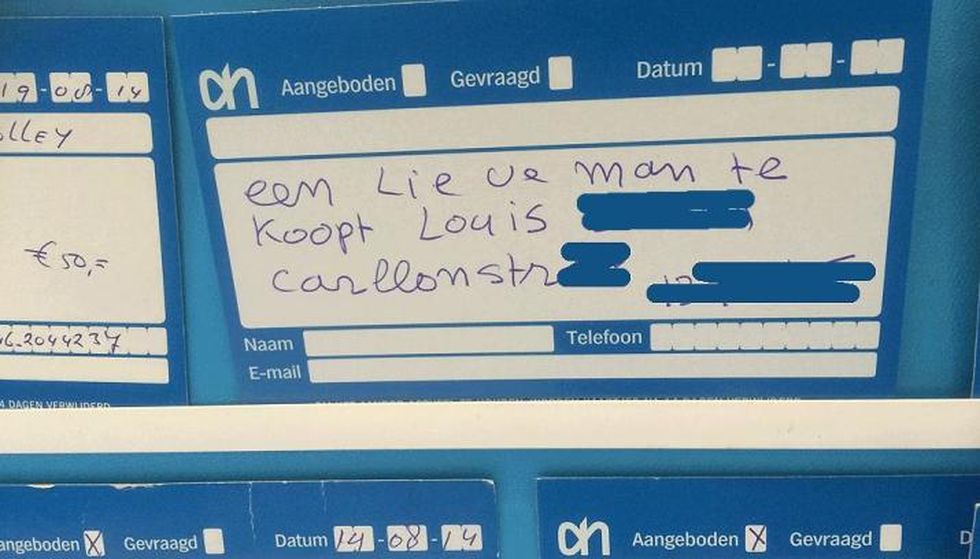 19-08-14
LLEY
€ 50,=
6-2044237
4 DAGEN VERWIJDERD
ah Aangeboden Gevraagd Datum - -
een Lieve man te
Koopt Louis
carllonstr
Naam Telefoon
E-mail
angeboden X Gevraagd Datum 14-08-14
ah Aangeboden X Gevraagd D